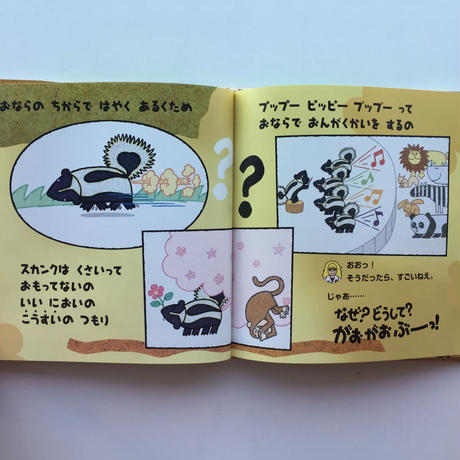 おならの ちからで はやく あるくため
?
スカンクは くさいって
おもってないの
いい においの
こうすいの つもり
プップー ピッピー プップー って
おならで おんがくかいを するの
?
おおっ!
そうだったら、すごいねえ。
じゃあ……
なぜ?どうして?
がおがおぶーっ!